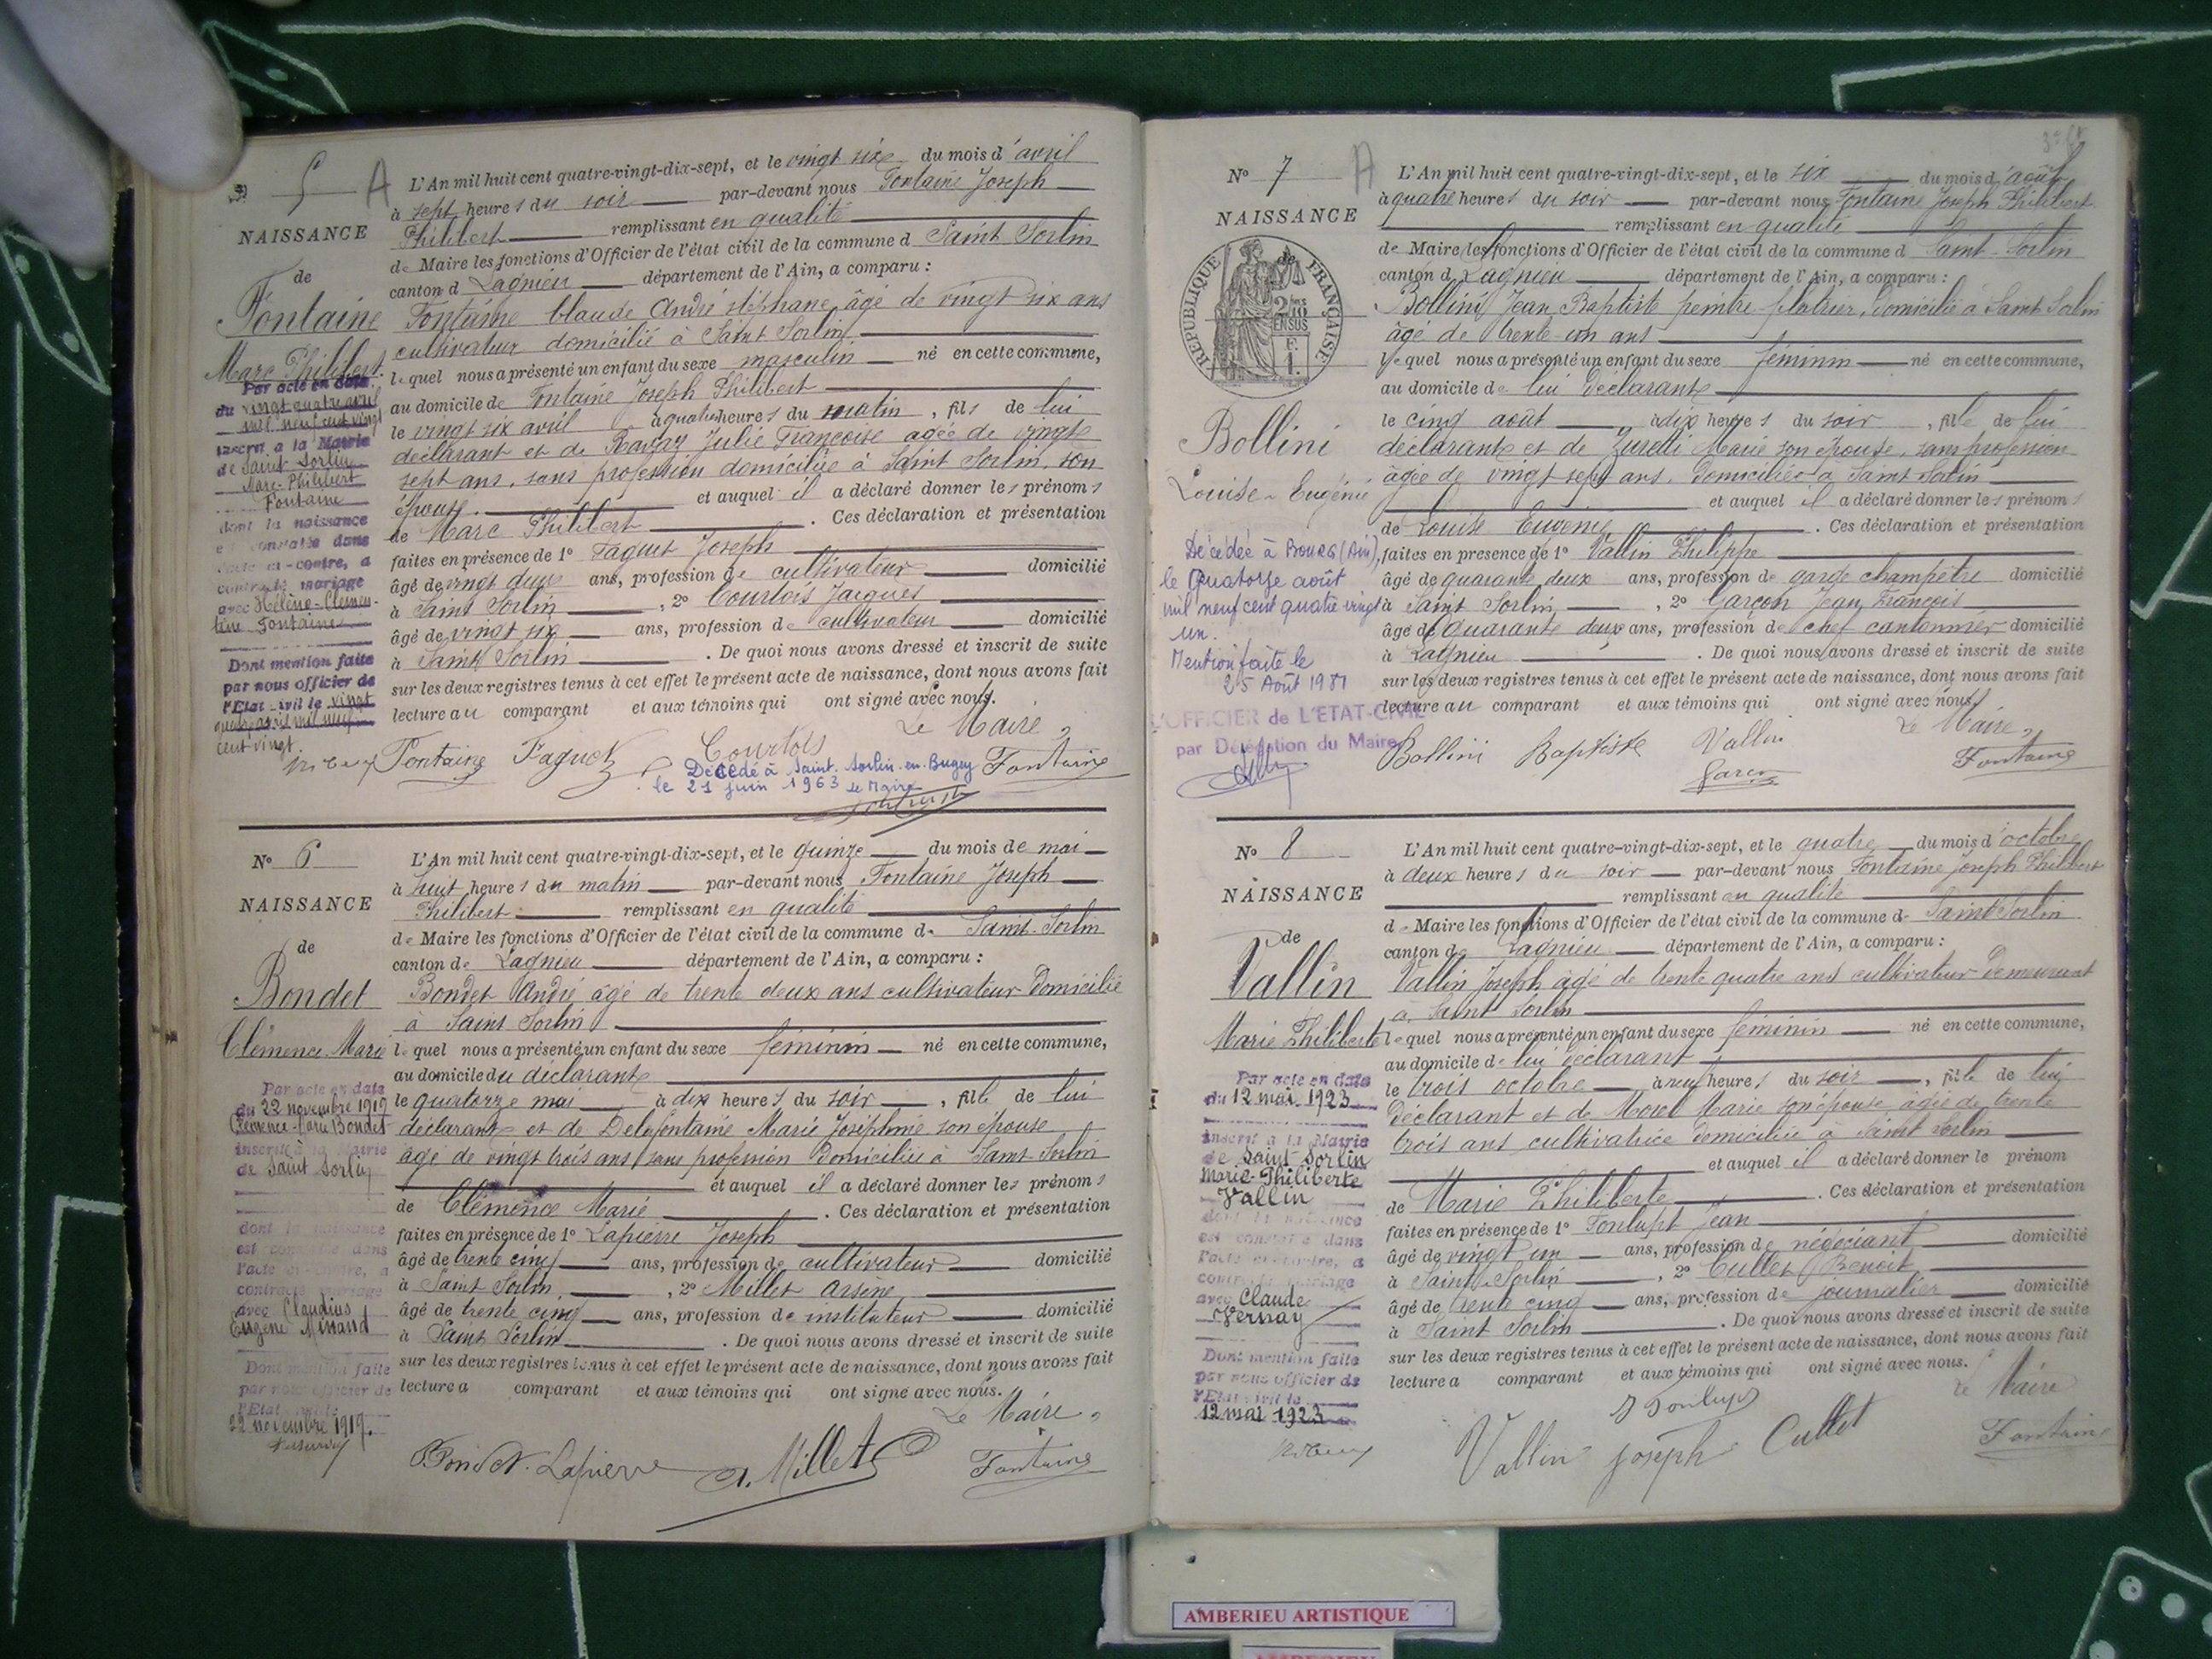 5 A
NAISSANCE
de
Fontaine
Marc Philibert
Par acte en date
du vingt quatre avril
mil neuf cent vingt
inscrit à la Mairie
de Saint Sorlin
Marc-Philibert
Fontaine
dont la naissance
est constatée dans
l'acte ci-contre, a
contracté mariage
avec Hélène-Clémen-
tine Fontaine
Dont mention faite
par nous officier de
l'Etat-civil le vingt
quatre avril mil neuf
cent vingt.
L'An mil huit cent quatre-vingt-dix-sept, et le vingt six du mois d'avril
à sept heures du soir par-devant nous Fontaine Joseph
Philibert remplissant en qualité
de Maire les fonctions d'Officier de l'état civil de la commune d Saint Sorlin
canton d Lagnieu département de l'Ain, a comparu :
Fontaine Claude André Stéphane âgé de vingt six ans
cultivateur domicilié à Saint Sorlin
lequel nous a présenté un enfant du sexe masculin né en cette commune,
au domicile de Fontaine Joseph Philibert
le vingt six avril à quatre heures du matin, fils de lui
déclarant et de Ravay Julie Françoise agée de vingt
sept ans, sans profession domiciliée à Saint Sorlin, son
épouse. et auquel il a déclaré donner les prénoms
de Marc Philibert. Ces déclaration et présentation
faites en présence de 1° Faguet Joseph
âgé de vingt deux ans, profession de cultivateur domicilié
à Saint Sorlin, 2° Courtois Jacques
âgé de vingt six ans, profession de cultivateur domicilié
à Saint Sorlin. De quoi nous avons dressé et inscrit de suite
sur les deux registres tenus à cet effet le présent acte de naissance, dont nous avons fait
lecture au comparant et aux témoins qui ont signé avec nous.
Le Maire,
Fontaine Faguet Courtois Fontaine
Décédé à Saint-Sorlin-en-Bugey
le 21 juin 1963 le Maire
N° 6
NAISSANCE
de
Bondet
Clémence Marie
Par acte en date
du 22 novembre 1919
Clémence-Marie Bondet
inscrit à la Mairie
de Saint Sorlin
dont la naissance
est constatée dans
l'acte ci-contre, a
contracté mariage
avec Claudius
Eugène Minand
Dont mention faite
par nous officier de
l'Etat-civil le
22 novembre 1919.
L'An mil huit cent quatre-vingt-dix-sept, et le quinze du mois de mai
à huit heures du matin par-devant nous Fontaine Joseph
Philibert remplissant en qualité
de Maire les fonctions d'Officier de l'état civil de la commune de Saint-Sorlin
canton de Lagnieu département de l'Ain, a comparu :
Bondet André âgé de trente deux ans cultivateur domicilié
à Saint Sorlin
lequel nous a présenté un enfant du sexe féminin né en cette commune,
au domicile du déclarant
le quatorze mai à dix heures du soir, fille de lui
déclarant et de Delafontaine Marie Joséphine son épouse
âgé de vingt trois ans sans profession domiciliée à Saint Sorlin
et auquel il a déclaré donner les prénoms
de Clémence Marie. Ces déclaration et présentation
faites en présence de 1° Lapierre Joseph
âgé de trente cinq ans, profession de cultivateur domicilié
à Saint Sorlin, 2° Millet Arsène
âgé de trente cinq ans, profession de instituteur domicilié
à Saint Sorlin. De quoi nous avons dressé et inscrit de suite
sur les deux registres tenus à cet effet le présent acte de naissance, dont nous avons fait
lecture a comparant et aux témoins qui ont signé avec nous.
Le Maire,
Bondet. Lapierre A. Millet Fontaine
N° 7 A
NAISSANCE
de
REPUBLIQUE FRANÇAISE
2/10 EN SUS
F. 1.
Bollini
Louise-Eugénie
Décédée à BOURG (Ain),
le quatorze août
mil neuf cent quatre vingt
un.
Mention faite le
25 Août 1981
L'OFFICIER de L'ETAT-CIVIL
par Délégation du Maire
L'An mil huit cent quatre-vingt-dix-sept, et le six du mois d'août
à quatre heures du soir par-devant nous Fontaine Joseph Philibert
remplissant en qualité
de Maire les fonctions d'Officier de l'état civil de la commune d Saint-Sorlin
canton d Lagnieu département de l'Ain, a comparu :
Bollini Jean Baptiste peintre-plâtrier, domicilié à Saint Sorlin
âgé de trente un ans
lequel nous a présenté un enfant du sexe féminin né en cette commune,
au domicile de lui déclarant
le cinq août à dix heures du soir, fille de lui
déclarant et de Zuretti Marie son épouse, sans profession
âgée de vingt sept ans, domiciliée à Saint Sorlin
et auquel il a déclaré donner les prénoms
de Louise Eugénie. Ces déclaration et présentation
faites en présence de 1° Vallin Philippe
âgé de quarante deux ans, profession de garde champêtre domicilié
à Saint Sorlin, 2° Garçon Jean François
âgé de quarante deux ans, profession de chef cantonnier domicilié
à Lagnieu. De quoi nous avons dressé et inscrit de suite
sur les deux registres tenus à cet effet le présent acte de naissance, dont nous avons fait
lecture au comparant et aux témoins qui ont signé avec nous.
Le Maire,
Bollini Baptiste Vallin Fontaine
N° 8
NAISSANCE
de
Vallin
Marie Philiberte
Par acte en date
du 12 mai 1923
inscrit à la Mairie
de Saint-Sorlin
Marie-Philiberte
Vallin
dont la naissance
est constatée dans
l'acte ci-contre, a
contracté mariage
avec Claude
Vernay
Dont mention faite
par nous officier de
l'Etat-civil le
12 mai 1923
L'An mil huit cent quatre-vingt-dix-sept, et le quatre du mois d'octobre
à deux heures du soir par-devant nous Fontaine Joseph Philibert
remplissant en qualité
de Maire les fonctions d'Officier de l'état civil de la commune de Saint Sorlin
canton de Lagnieu département de l'Ain, a comparu :
Vallin Joseph âgé de trente quatre ans cultivateur demeurant
à Saint Sorlin
lequel nous a présenté un enfant du sexe féminin né en cette commune,
au domicile de lui déclarant
le trois octobre à neuf heures du soir, fille de lui
déclarant et de Morel Marie son épouse, âgée de trente
trois ans cultivatrice domiciliée à Saint Sorlin
et auquel il a déclaré donner le prénom
de Marie Philiberte. Ces déclaration et présentation
faites en présence de 1° Fonlupt Jean
âgé de vingt un ans, profession de négociant domicilié
à Saint-Sorlin, 2° Cullet Benoit
âgé de trente cinq ans, profession de journalier domicilié
à Saint Sorlin. De quoi nous avons dressé et inscrit de suite
sur les deux registres tenus à cet effet le présent acte de naissance, dont nous avons fait
lecture a comparant et aux témoins qui ont signé avec nous.
Le Maire
J Fonlupt
Vallin Joseph Cullet Fontaine
AMBERIEU ARTISTIQUE